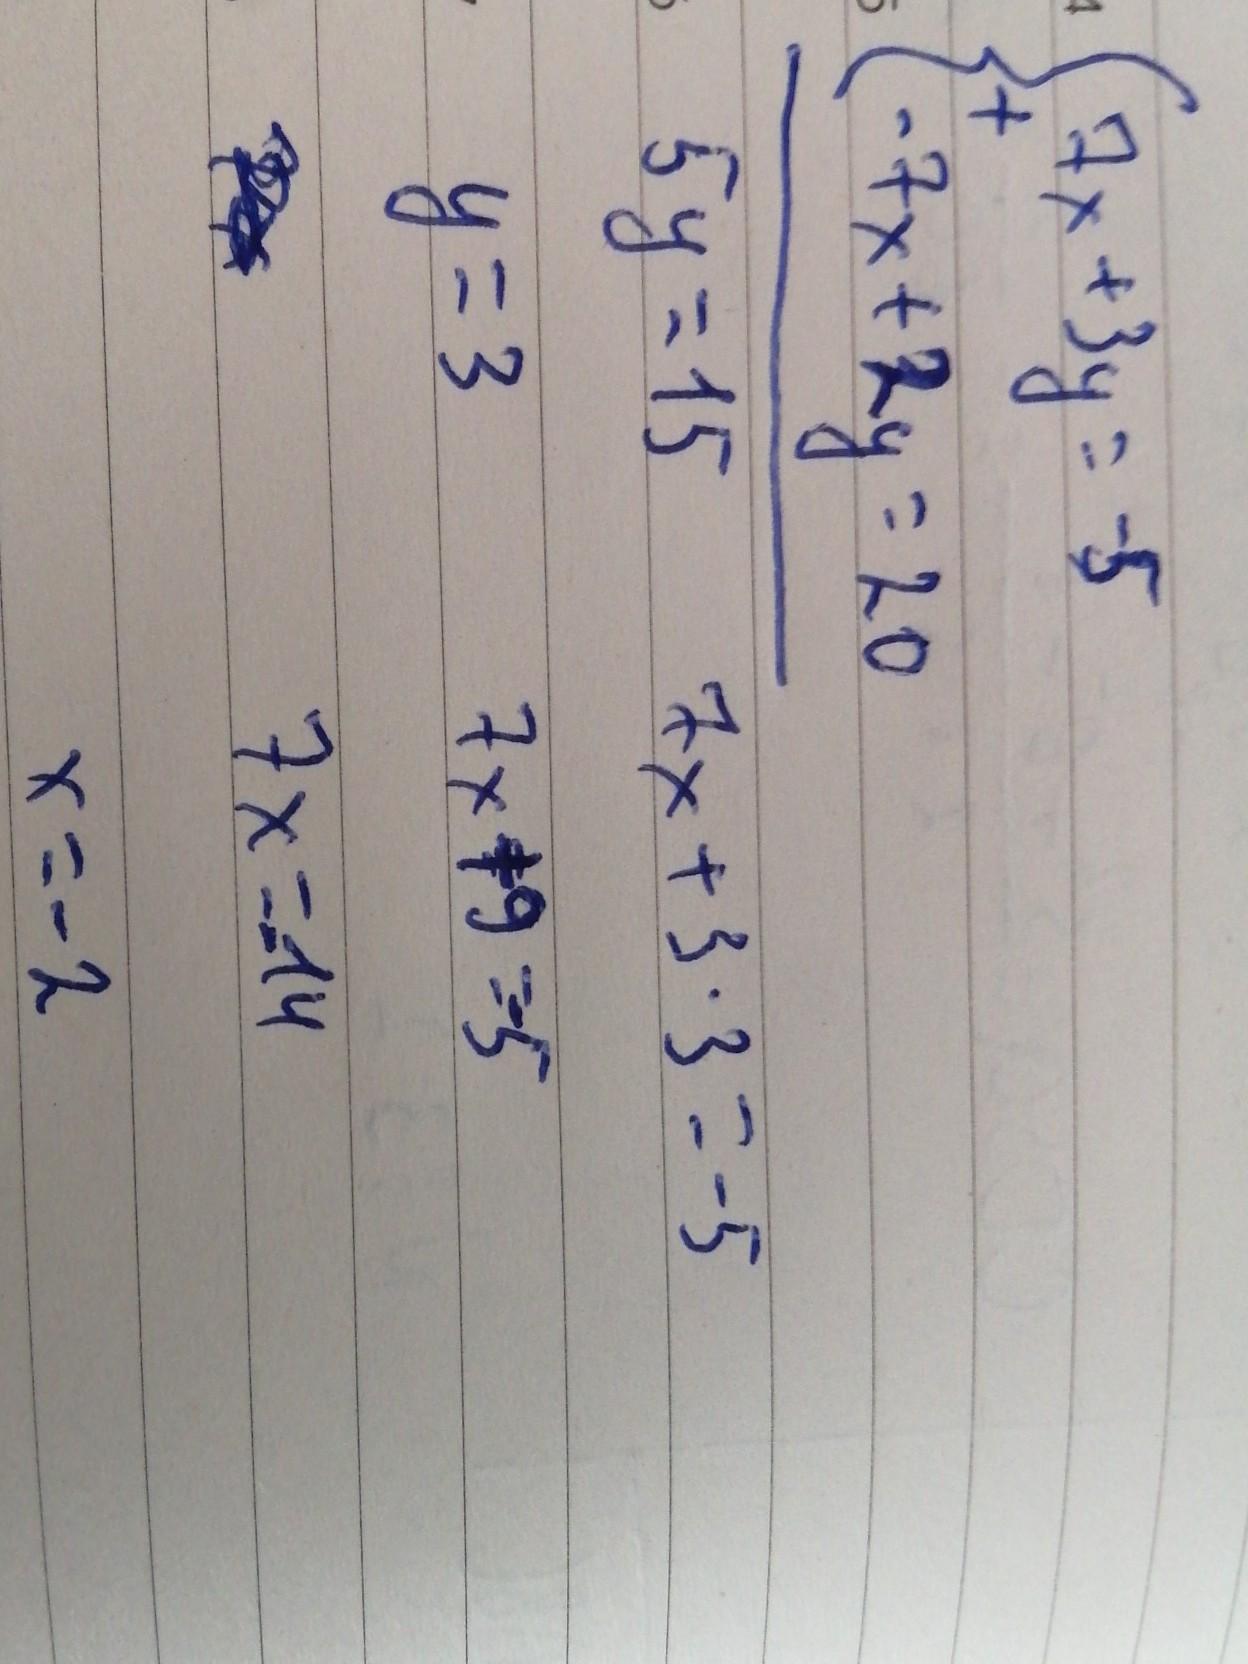 7x + 3y = -5
+
-7x + 2y = 20
5y = 15 7x + 3·3 = -5
y = 3 7x + 9 = -5
7x = -14
x = -2